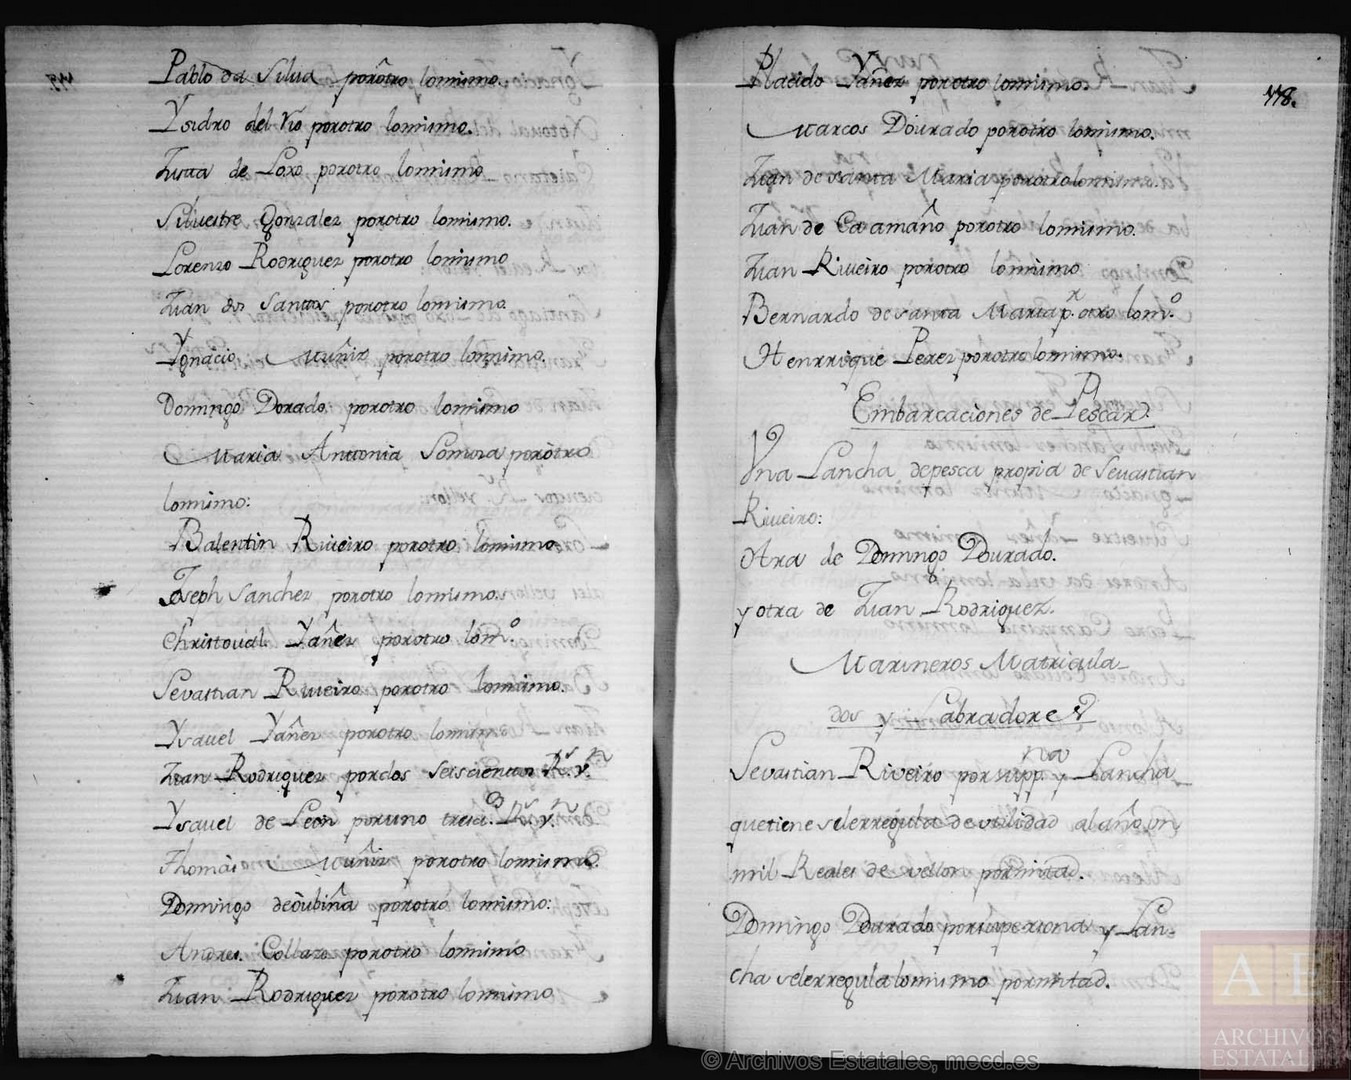 Pablo da Silva porotro lomismo.
Ysidro del Rio porotro lomismo.
Juan de porotro lomismo
Silvestre Gonzalez porotro lomismo.
Lorenzo Rodriguez porotro lomismo
Juan dos Santtos porotro lomismo.
Ygnacio Muñiz porotro lomismo.
Domingo Dorado porotro lomismo
Maria Anttonia Somoza porotro
lomismo:
Balentin Riveiro porotro lomismo
Joseph Sanchez porotro lomismo.
Christoval Yañez porotro lom.º
Sevastian Riveiro porotro lomismo.
Ysavel Yañez porotro lomismo
Juan Rodriguez pordos seiscientos R.s v.n
Ysavel de Leon poruno R.s v.n
Thomas Muñiz porotro lomismo.
Domingo deoubiña porotro lomismo:
Andres Collazo porotro lomismo
Juan Rodriguez porotro lomismo
118.
Placido Yañez porotro lomismo.
Marcos Dourado porotro lomismo.
Juan de santa Maria porotro lomismo.
Juan de Caamaño porotro lomismo.
Juan Riveiro porotro lomismo
Bernardo de santa Maria p.r otro lom.º
Henrrique Perez porotro lomismo.
Embarcaciones de Pescar.
Una Lancha depesca propia de Sevastian
Riveiro:
Otra de Domingo Dourado.
y otra de Juan Rodriguez.
Marineros Matricula-
dos y Labradores
Sevastian Riveiro porsupp.na y Lancha
quetiene selerregula de utilidad alaño un
mil Reales de vellon pormitad.
Domingo Dourado porsupersona y Lan-
cha selerregula lomismo pormitad.
© Archivos Estatales, mecd.es
AE
ARCHIVOS
ESTATALES